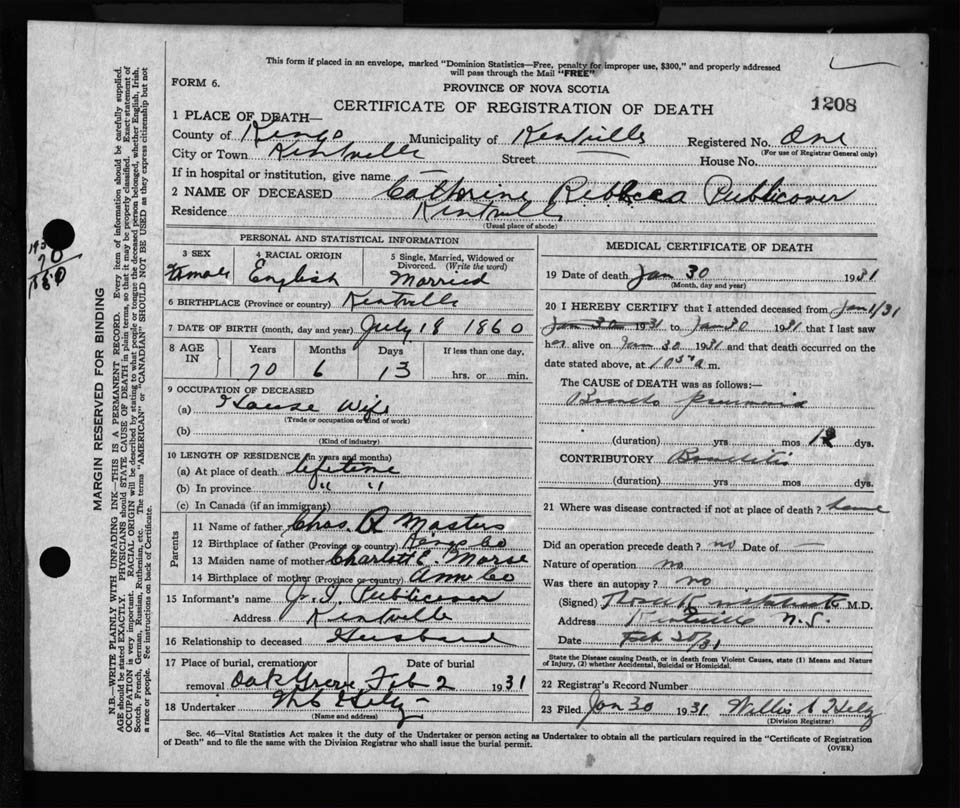 This form if placed in an envelope, marked "Dominion Statistics—Free, penalty for improper use, $300," and properly addressed
will pass through the Mail "FREE"
FORM 6.
PROVINCE OF NOVA SCOTIA
CERTIFICATE OF REGISTRATION OF DEATH
1208
1 PLACE OF DEATH—
County of Kings Municipality of Kentville Registered No. One
(For use of Registrar General only)
City or Town Kentville Street — House No.
If in hospital or institution, give name
2 NAME OF DECEASED Catherine Rebecca Publicover
Residence Kentville
(Usual place of abode)
PERSONAL AND STATISTICAL INFORMATION
3 SEX Female
4 RACIAL ORIGIN English
5 Single, Married, Widowed or Divorced. (Write the word) Married
6 BIRTHPLACE (Province or country) Kentville
7 DATE OF BIRTH (month, day and year) July 18 1860
8 AGE IN Years Months Days If less than one day,
70 6 13 hrs. or min.
9 OCCUPATION OF DECEASED
(a) House Wife
(Trade or occupation or kind of work)
(b)
(Kind of industry)
10 LENGTH OF RESIDENCE (in years and months)
(a) At place of death lifetime
(b) In province " "
(c) In Canada (if an immigrant)
Parents
11 Name of father Chas. A Masters
12 Birthplace of father (Province or country) Kings Co
13 Maiden name of mother Charlott E. Morse
14 Birthplace of mother (Province or country) Ann Co
15 Informant's name J. I Publicover
Address Kentville
16 Relationship to deceased Husband
17 Place of burial, cremation or removal Oak Grove Date of burial Feb 2 1931
18 Undertaker
(Name and address)
MEDICAL CERTIFICATE OF DEATH
19 Date of death Jan 30 1931
(Month, day and year)
20 I HEREBY CERTIFY that I attended deceased from Jan 1/31
Jan 30 1931 to Jan 30 1931 that I last saw
her alive on Jan 30 1931 and that death occurred on the
date stated above, at 10 30 a m.
The CAUSE of DEATH was as follows:—
Broncho pneumonia
(duration) yrs mos 12 dys.
CONTRIBUTORY Bronchitis
(duration) yrs mos dys.
21 Where was disease contracted if not at place of death? home
Did an operation precede death? no Date of —
Nature of operation no
Was there an autopsy? no
(Signed) M.D.
Address Kentville N.S.
Date
State the Disease causing Death, or in death from Violent Causes, state (1) Means and Nature
of Injury, (2) whether Accidental, Suicidal or Homicidal.
22 Registrar's Record Number
23 Filed Jan 30 1931 Willis
(Division Registrar)
Sec. 46—Vital Statistics Act makes it the duty of the Undertaker or person acting as Undertaker to obtain all the particulars required in the "Certificate of Registration
of Death" and to file the same with the Division Registrar who shall issue the burial permit.
(OVER)
MARGIN RESERVED FOR BINDING
N.B.—WRITE PLAINLY WITH UNFADING INK—THIS IS A PERMANENT RECORD. Every item of information should be carefully supplied.
AGE should be stated EXACTLY. PHYSICIANS should STATE CAUSE OF DEATH in plain terms, so that it may be properly classified. Exact statement of
OCCUPATION is very important. RACIAL ORIGIN will be described by stating to what people or tongue the deceased person belonged, whether English, Irish,
Scotch, French, German, Russian, Ruthenian, etc. The terms "AMERICAN" or "CANADIAN" SHOULD NOT BE USED as they express citizenship but not
a race or people. See instructions on back of Certificate.